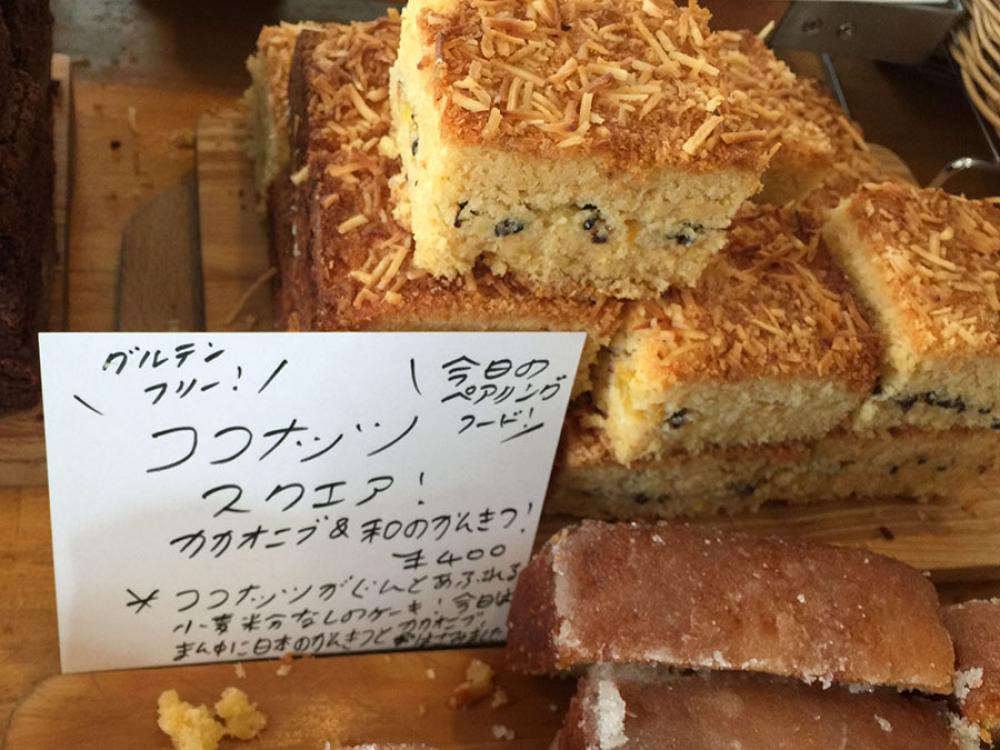 グルテン
フリー!
今日の
ペアリング
フード!
ココナッツ
スクエア!
カカオニブ&和のかんきつ!
¥400
* ココナッツがぐんとあふれる
小麦粉なしのケーキ!今日は
カカオニブ!
まん中に日本のかんきつと はさみました